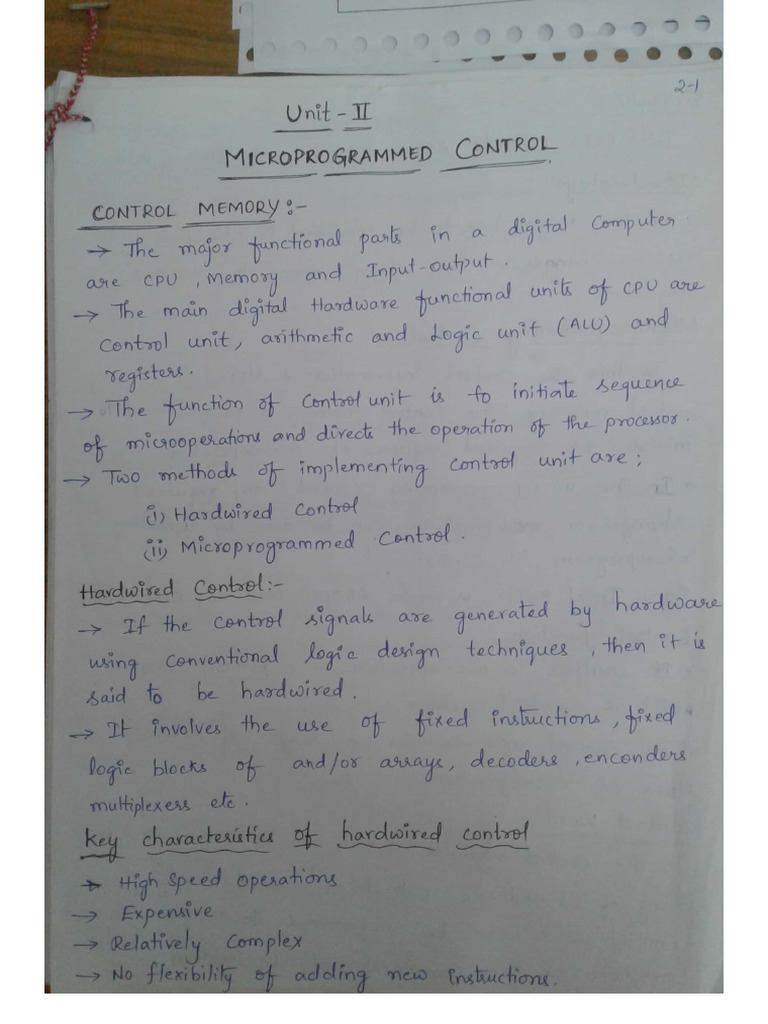 2-1
Unit - II
MICROPROGRAMMED CONTROL
CONTROL MEMORY:-
→ The major functional parts in a digital Computer
are CPU, Memory and Input-output.
→ The main digital Hardware functional units of CPU are
Control unit, arithmetic and Logic unit (ALU) and
registers.
→ The function of Control unit is to initiate sequence
of microoperations and directs the operation of the processor.
→ Two methods of implementing control unit are;
(i) Hardwired Control
(ii) Microprogrammed Control.
Hardwired Control:-
→ If the control signals are generated by hardware
using conventional logic design techniques, then it is
said to be hardwired.
→ It involves the use of fixed instructions, fixed
logic blocks of and/or arrays, decoders, enconders
multiplexers etc.
Key characteristics of hardwired control
→ High Speed operations
→ Expensive
→ Relatively Complex
→ No flexibility of adding new instructions.